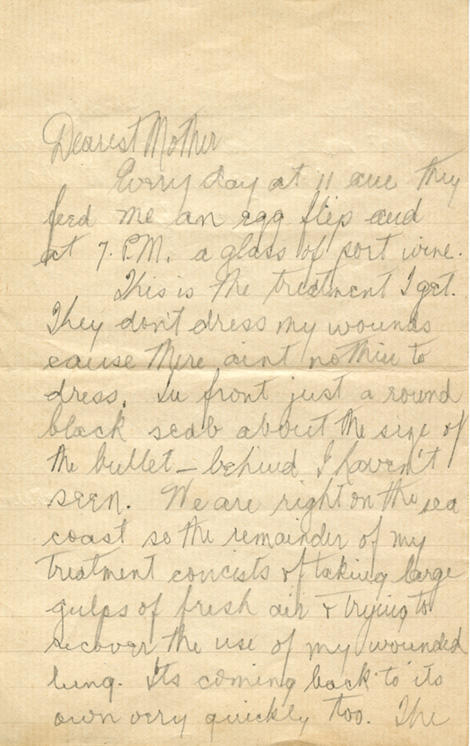 Dearest Mother
Every day at 11 am they
feed me an egg flip and
at 7. P.M. a glass of port wine.
This is the treatment I get.
They don't dress my wounds
cause there aint nothin to
dress. In front just a round
black scab about the size of
the bullet – behind I haven't
seen. We are right on the sea
coast so the remainder of my
treatment concists of taking large
gulps of fresh air & trying to
recover the use of my wounded
lung. Its coming back to its
own very quickly too. The